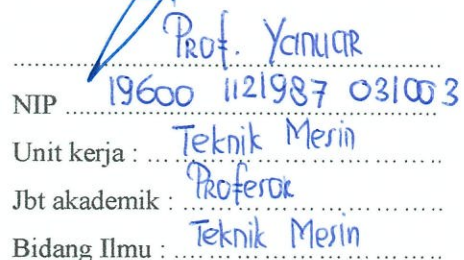 Prof. Yanuar
NIP 19600 1121987 031003
Unit kerja : Teknik Mesin
Jbt akademik : Profesor
Bidang Ilmu : Teknik Mesin